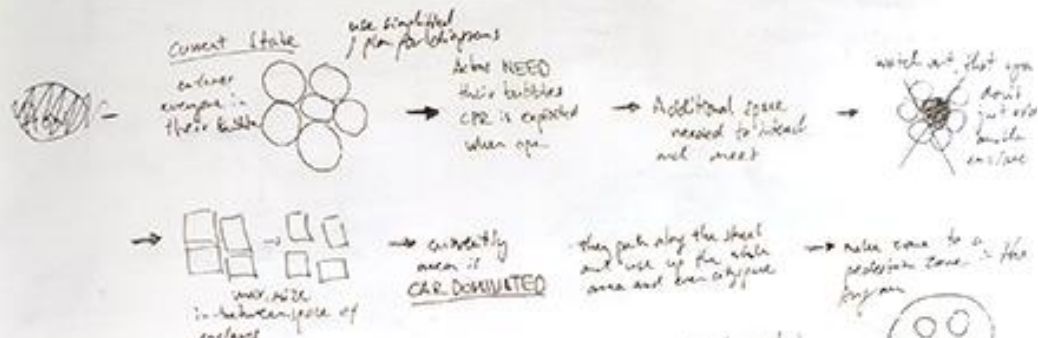 Current State
use simplified
plan for diagrams
everyone in
their bubble
NEED
their bubbles
CPR is exploited
when open
Additional space
needed to interact
and meet
watch out that you
don't
just add
another
enclave
max. size
in-between space of
enclaves
currently
area is
CAR DOMINATED
they park along the street
and use up the whole
area and even
make zone to a
pedestrian zone